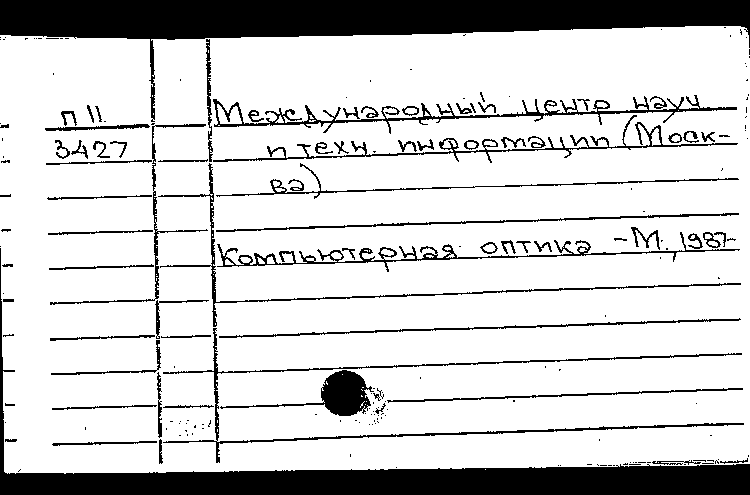 П II Международный центр науч.
3427 и техн. информации (Моск-
ва)
Компьютерная оптика. -М., 1987-